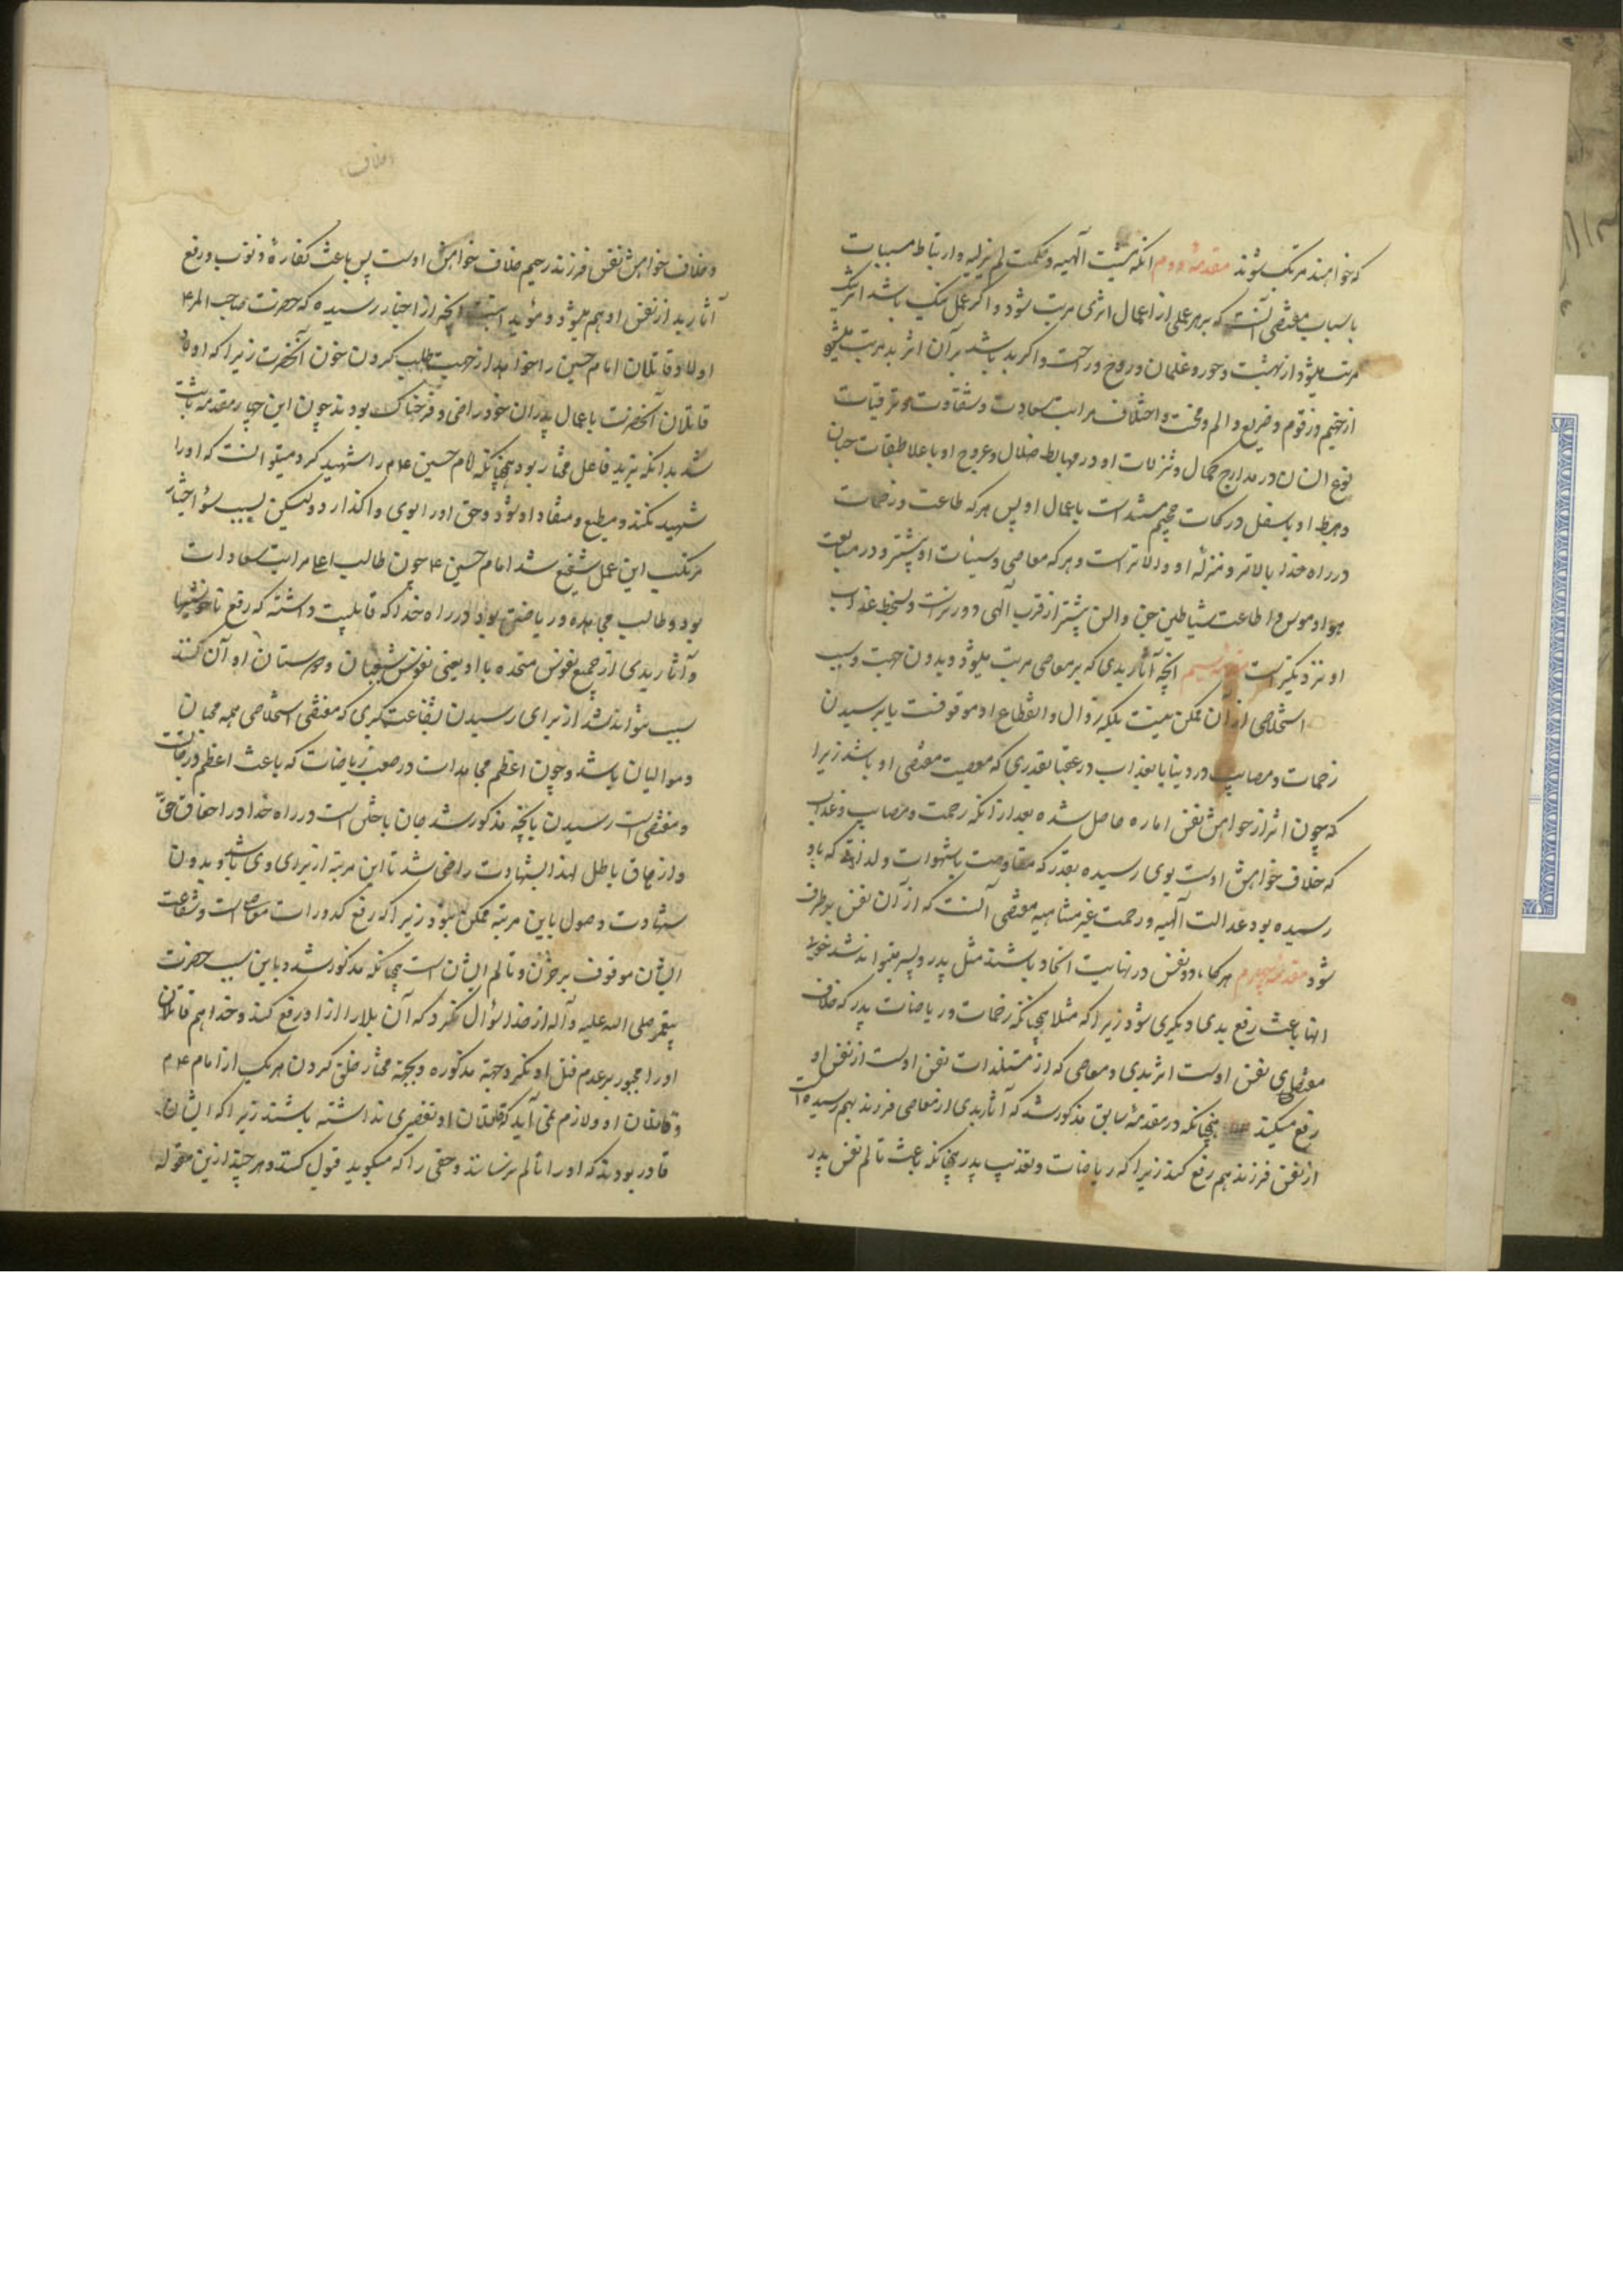 که خواهند مرتکب شوند مقدمهٔ دوم انکه مشیت آلهیه و حکمت لم یزلیه و ارتباط مسببات
باسباب مقتضی آنست که بر هر عملی از اعمال اثری مرتب شود و اگر عمل نیک باشد اثر نیک
مرتب میشود از بهشت و حور و غلمان و روح و راحت و اگر بد باشد بر آن اثر بد مرتب میشود
از جحیم و زقوم و ضریع و الم و محنت و اختلاف مراتب سعادت و شقاوت و ترقیات
نوع انسان در مدارج کمال و تنزلات او در مهابط ضلال و عروج او باعلا طبقات جنان
و هبوط او باسفل درکات جحیم مستند است باعمال او پس هر که طاعت و زحمات
در راه خدا بالاتر و منزلهٔ او والاتر است و هر که معاصی و سیئات او بیشتر و در متابعت
هوا و هوس و اطاعت شیاطین جن و انس بیشتر از قرب آلهی دورتر است و بسخط عذاب
او نزدیکتر است مقدمه سیم انچه آثار بدی که بر معاصی مرتب میشود و بدون جهت و سبب
استخلاص از آن ممکن نیست بلکه زوال و انقطاع او موقوفست یا برسیدن
زحمات و مصایب در دنیا یا بعذاب در عقبا بقدری که معصیت مقتضی او باشد زیرا
که چون اثر از خواهش نفس اماره حاصل شده بعد از انکه زحمت و مصایب و عذاب
که خلاف خواهش اوست بوی رسیده بقدر که مقاومت با شهوات و لذاتیکه باو
رسیده بود عدالت آلهیه و رحمت غیر متناهیه مقتضی آنست که از آن نفس برطرف
شود مقدمه چهارم هر گاه دو نفس در نهایت اتحاد باشند مثل پدر و پسر میتواند شد خوبی
انها باعث رفع بدی دیگری شود زیرا که مثلا همچنانکه زحمات و ریاضات پدر که خلاف
مقتضای نفس اوست اثر بدی و معاصی که از مستلذات نفس اوست از نفس او
رفع میکند همچنانکه در مقدمهٔ سابق مذکور شد که آثار بدی از معاصی فرزند بهم رسیده
از نفس فرزند هم رفع کند زیرا که ریاضات و تعذیب پدر همچنانکه باعث تألم نفس پدر
و خلاف خواهش نفس فرزند رحیم خلاف خواهش اوست پس باعث کفارهٔ ذنوب و رفع
آثار بد از نفس او هم میشود و مؤید اینست انچه از اخبار رسیده که حضرت صاحب الامر ع
اولاد قاتلان امام حسین را خواهد از جهت طلب کردن خون آنحضرت زیرا که اولاد
قاتلان آنحضرت باعمال پدران خود راضی و فرحناک بودند چون این چهار مقدمه ثابت
شد بدانکه یزید فاعل مختار بود همچنانکه امام حسین ع م را شهید کرد میتوانست که او را
شهید نکند و مطیع و منقاد او شود و حق او را بوی واگذارد ولیکن بسبب سوء اختیار
مرتکب این عمل شنیع شد امام حسین ع چون طالب اعلا مراتب سعادات
بود و طالب مجاهده و ریاضتی بود در راه خدا که قابلیت داشته که رفع ناخوشیها
و آثار بدی از جمیع نفوس متحده با او یعنی نفوس شیعیان و دوستان او آن کند
سبب تواند شد از برای رسیدن بشفاعت کبری که مقتضی استخلاص همه محبان
و موالیان باشد و چون اعظم مجاهدات و صعب ریاضات که باعث اعظم درجات
و مقتضی است رسیدن بانچه مذکور شد جان باختن است در راه خدا در احقاق حق
و ازهاق باطل لهذا بشهادت راضی شد تا این مرتبه از برای وی باشد و بدون
شهادت وصول باین مرتبه ممکن نبود زیرا که رفع کدورات معاصی است و شفاعت
ایشان موقوف بر حزن و تألم ایشان است همچنانکه مذکور شد و باین سبب حضرت
پیغمبر صلی الله علیه و آله از خدا سؤال نکرد که آن بلا را از او رفع کند و خدا هم قاتلان
او را مجبور بر عدم قتل او نکرد و جهة مذکوره و بجهة مختار خلق کردن هر یک از امام ع م
و قاتلان او و لازم نمی آید که قاتلان او تقصیری نداشته باشند زیرا که ایشان
قادر بودند که او را تألم نرسانند و حقی را که میگوید قبول کنند و هر چند ازین مقوله